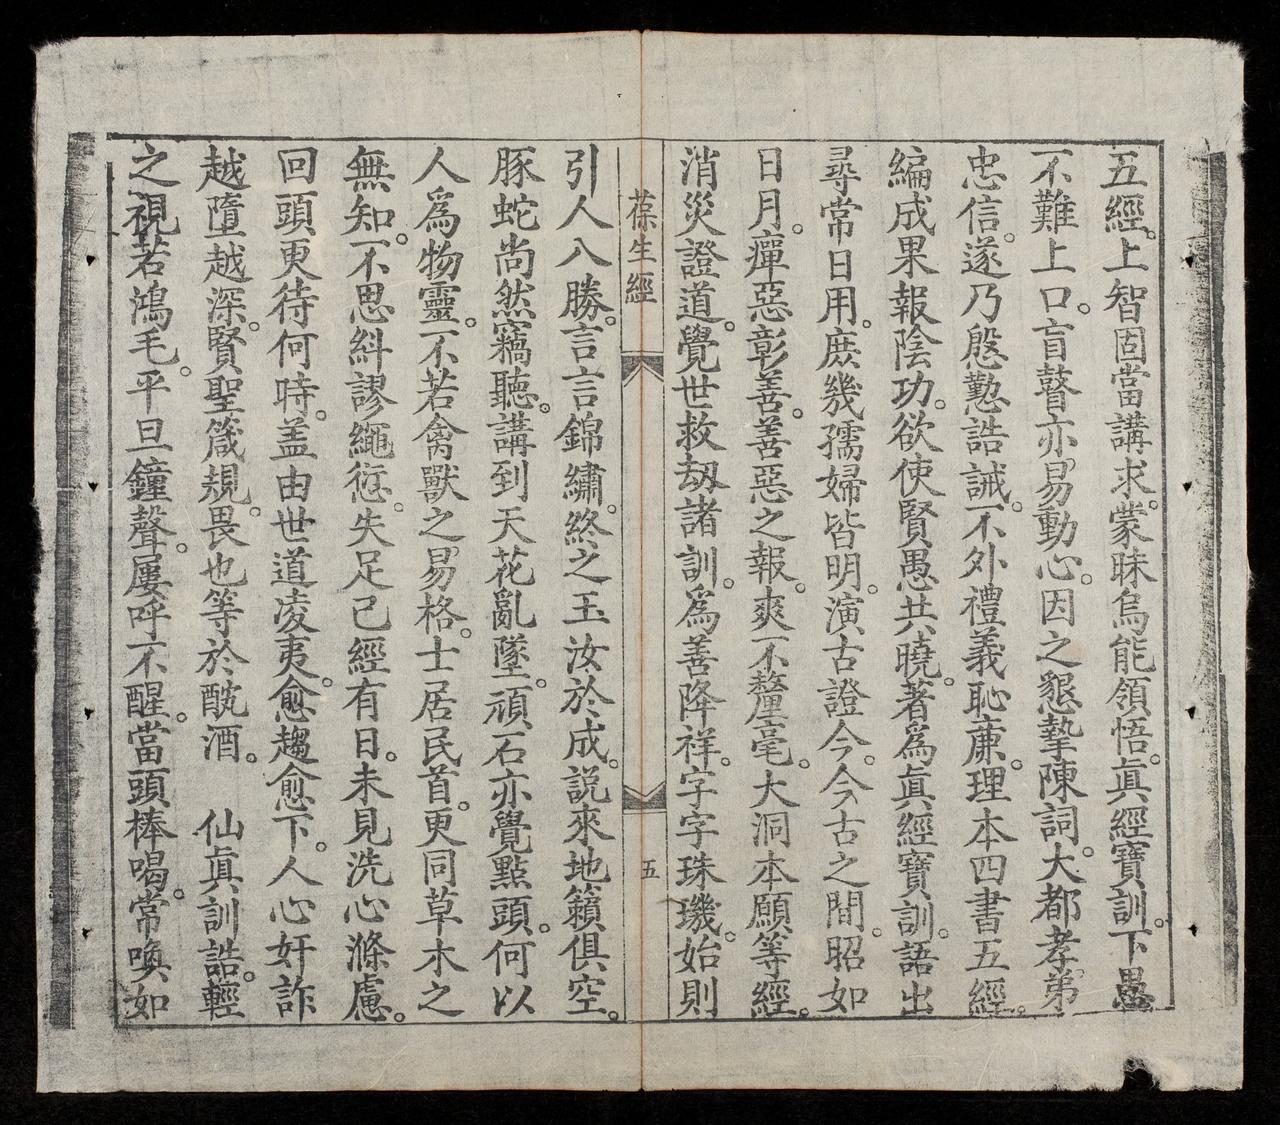 五經。上智固當講求。蒙昧烏能領悟。眞經寶訓。下愚
不難上口。盲瞽亦易動心。因之懇摯陳詞。大都孝弟
忠信。遂乃慇懃誥誡。不外禮義恥亷。理本四書五經。
編成果報陰功。欲使賢愚共曉。著爲眞經寶訓。語出
尋常日用。庶幾孺婦皆明。演古證今。今古之間。昭如
日月。癉惡彰善。善惡之報。爽不釐毫。大洞本願等經。
消災證道。覺世救刼諸訓。爲善降祥。字字珠璣。始則
葆生經
五
引人入勝。言言錦繡。終之玉汝於成。説來地籟俱空。
豚蛇尚然竊聽。講到天花亂墜。頑石亦覺點頭。何以
人爲物靈。不若禽獸之易格。士居民首。更同草木之
無知。不思糾謬繩愆。失足已經有日。未見洗心滌慮。
回頭更待何時。盖由世道凌夷。愈趨愈下。人心奸詐
越墮越深。賢聖箴規。畏也等於酖酒。　仙眞訓誥。輕
之視若鴻毛。平旦鐘聲。屢呼不醒。當頭棒喝。常喚如